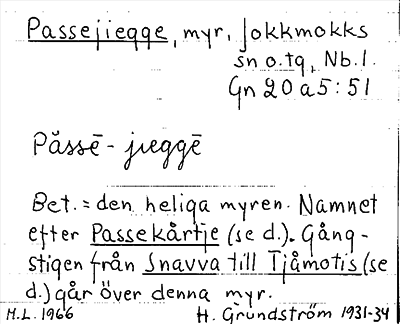 Passejiegge, myr, Jokkmokks
sn o. tg, Nb. l.
Gn 20 a 5:51
Påssē-jieggē
Bet. = den heliga myren. Namnet
efter Passekårtje (se d.). Gång-
stigen från Snavva till Tjåmotis (se
d.) går över denna myr.
H.L. 1966 H. Grundström 1931-34